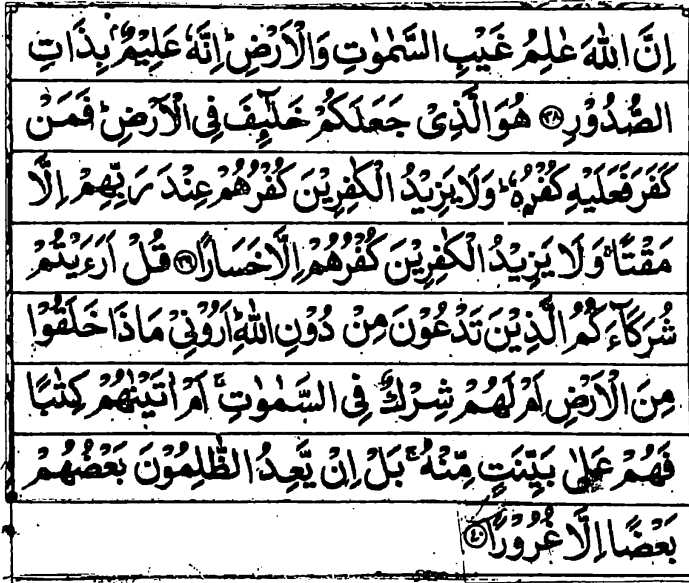 اِنَّ اللّٰهَ عٰلِمُ غَيْبِ السَّمٰوٰتِ وَالْاَرْضِ ؕ اِنَّهٗ عَلِيْمٌۢ بِذَاتِ
الصُّدُوْرِ ﴿۳۸﴾ هُوَ الَّذِىْ جَعَلَكُمْ خَلٰٓئِفَ فِى الْاَرْضِ ؕ فَمَنْ
كَفَرَ فَعَلَيْهِ كُفْرُهٗ ؕ وَلَا يَزِيْدُ الْكٰفِرِيْنَ كُفْرُهُمْ عِنْدَ رَبِّهِمْ اِلَّا
مَقْتًا ۚ وَلَا يَزِيْدُ الْكٰفِرِيْنَ كُفْرُهُمْ اِلَّا خَسَارًا ﴿۳۹﴾ قُلْ اَرَءَيْتُمْ
شُرَكَآءَكُمُ الَّذِيْنَ تَدْعُوْنَ مِنْ دُوْنِ اللّٰهِ ؕ اَرُوْنِىْ مَاذَا خَلَقُوْا
مِنَ الْاَرْضِ اَمْ لَهُمْ شِرْكٌ فِى السَّمٰوٰتِ ۚ اَمْ اٰتَيْنٰهُمْ كِتٰبًا
فَهُمْ عَلٰى بَيِّنَتٍ مِّنْهُ ۚ بَلْ اِنْ يَّعِدُ الظّٰلِمُوْنَ بَعْضُهُمْ
بَعْضًا اِلَّا غُرُوْرًا ﴿۴۰﴾